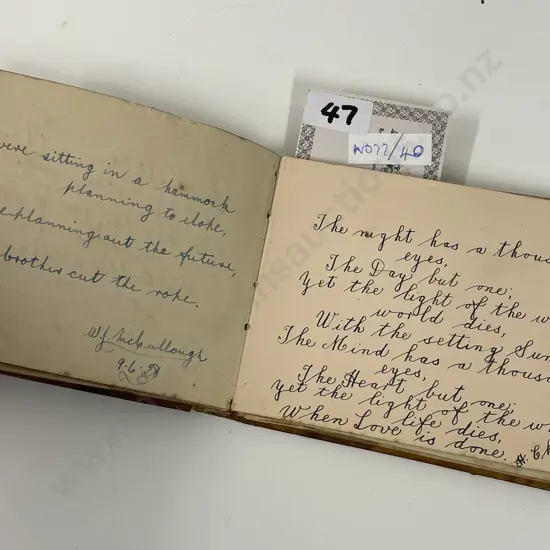 were sitting in a hammock
planning to elope,
planning out the future,
brother cut the rope.
W J McCullough
9-6-28
47
W077/40
The night has a thous
eyes,
The Day but one;
Yet the light of the w
world dies,
With the setting Sun
The Mind has a thous
eyes,
The Heart but one;
Yet the light of the w
life dies,
When Love is done.